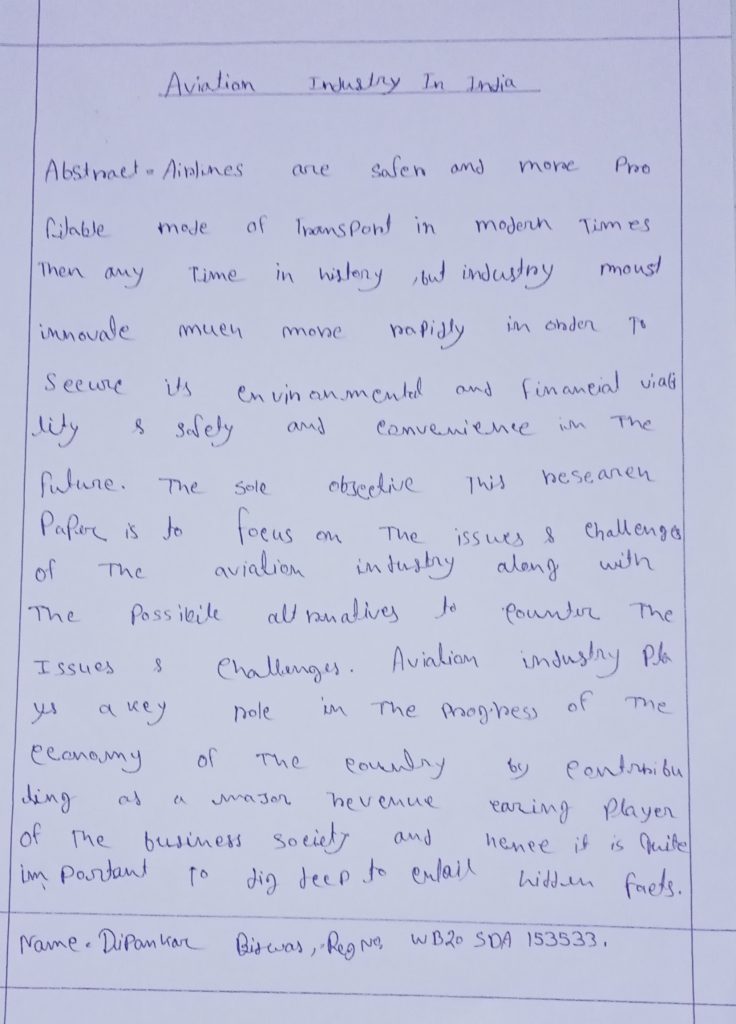 Aviation Industry In India
Abstract - Airlines are safer and more Pro
fitable mode of Transport in modern Times
Then any Time in history , but industry moust
innovate much more rapidly in order To
Secure its environmental and financial viabi
lity & safety and convenience in The
future. The sole objective This research
Paper is to focus on The issues & challenges
of The aviation industry along with
The Possible altrnatives to counter The
Issues & challenges. Aviation industry Pla
ys a key role in The Progress of The
economy of The country by contribu
ting as a major revenue earing Player
of The business society and hence it is Quite
important To dig deep to entail hidden facts.
Name - Dipankar Biswas, Reg No, WB20 SDA 153533.